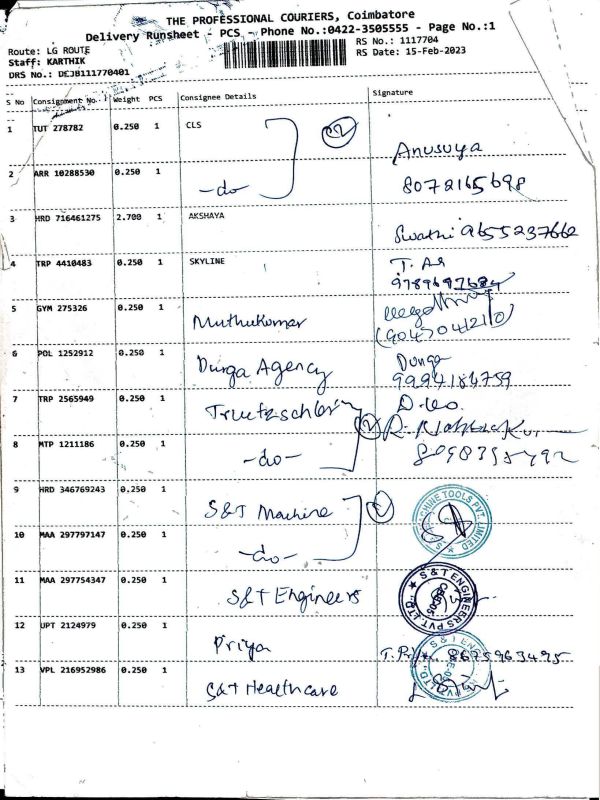 THE PROFESSIONAL COURIERS, Coimbatore
Delivery Runsheet - PCS - Phone No.:0422-3505555 - Page No.:1
Route: LG ROUTE
RS No.: 1117704
Staff: KARTHIK
RS Date: 15-Feb-2023
DRS No.: DEJB111770401
S No Consignment No. Weight PCS Consignee Details Signature
1 TUT 278782 0.250 1 CLS 2
Anusuya
2 ARR 10288530 0.250 1 -do- 8072165698
3 HRD 716461275 2.700 1 AKSHAYA
Swathi 9655237662
4 TRP 4410483 0.250 1 SKYLINE T. As
9789697684
5 GYM 275326 0.250 1 Muthukumar
(9047041210)
6 POL 1252912 0.250 1 Durga Agency Durga
9994184759
7 TRP 2565949 0.250 1 Truetzschler 2
8 MTP 1211186 0.250 1 -do-
9 HRD 346769243 0.250 1 S&T Machine 2
MACHINE TOOLS PVT. LIMITED
10 MAA 297797147 0.250 1 -do-
11 MAA 297754347 0.250 1 S&T Engineers
S & T ENGINEERS PVT. LTD
12 UPT 2124979 0.250 1 Priya 8675963495
13 VPL 216952986 0.250 1 S&T Healthcare